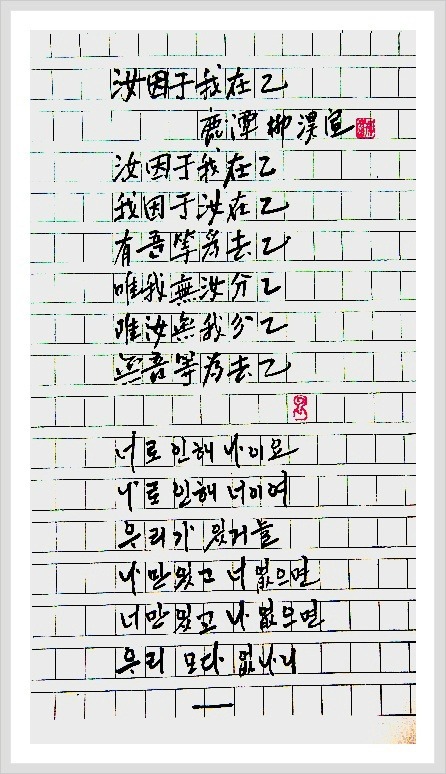 汝因于我在乙
鹿潭 柳
汝因于我在乙
我因于汝在乙
有吾等為去乙
唯我無汝分乙
唯汝無我分乙
無吾等為去乙
너로 인해 나이요
나로 인해 너이여
우리가 있거늘
나만 있고 너 없으면
너만 있고 나 없으면
우리 모다 없나니